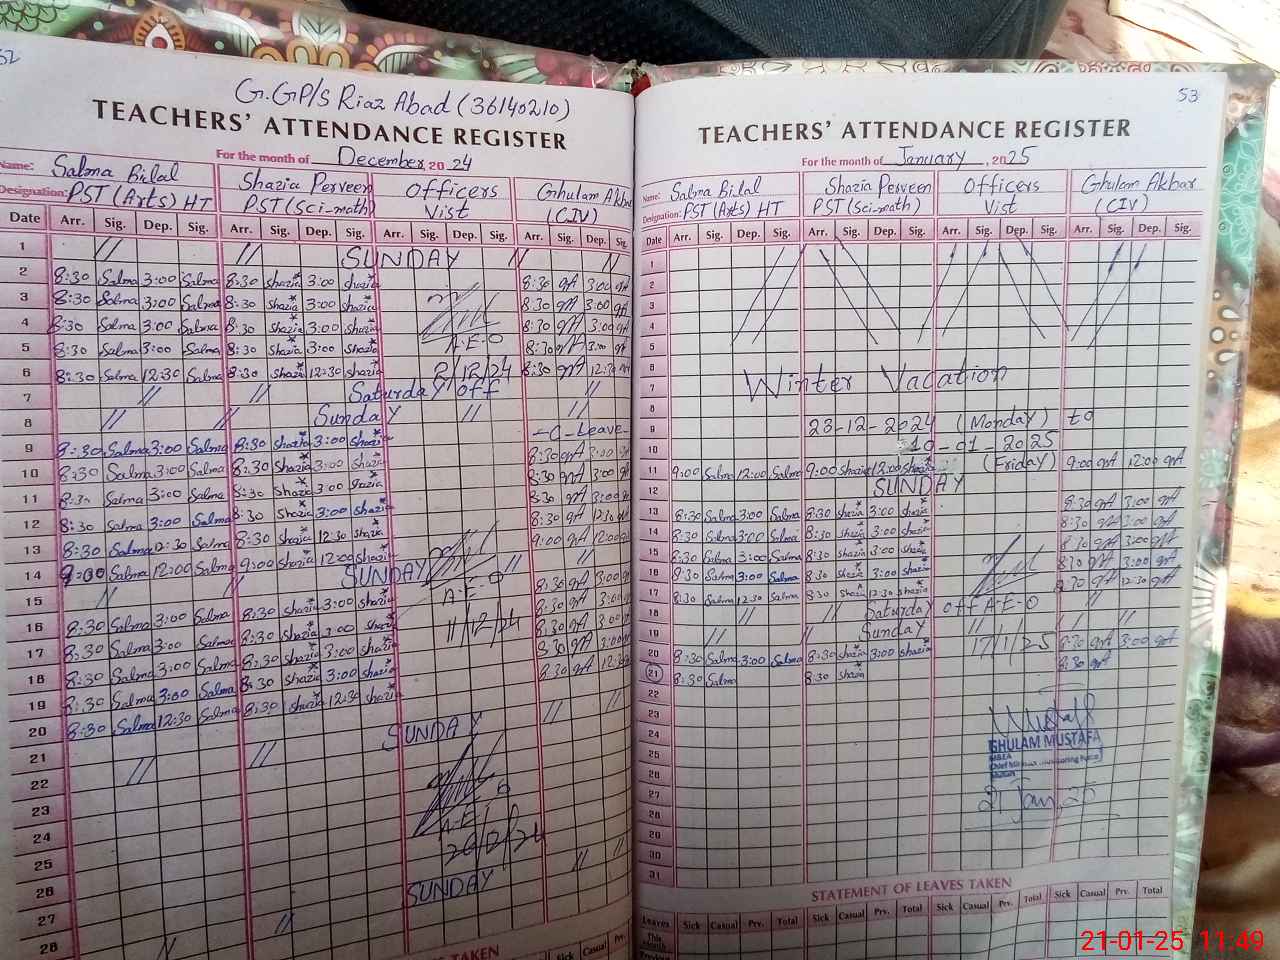 G.GP/S Riaz Abad (36140210)
TEACHERS' ATTENDANCE REGISTER
For the month of December, 20 24
Name: Salma Bilal Shazia Perveen Officers Ghulam Akbar
Designation: PST (Arts) HT PST (Sci-math) Vist (CIV)
Date Arr. Sig. Dep. Sig. Arr. Sig. Dep. Sig. Arr. Sig. Dep. Sig. Arr. Sig. Dep. Sig.
1 // // SUNDAY // //
2 8:30 Salma 3:00 Salma 8:30 shazia 3:00 shazia 8:30 gA 3:00 gA
3 8:30 Salma 3:00 Salma 8:30 shazia 3:00 shazia 8:30 gA 3:00 gA
4 8:30 Salma 3:00 Salma 8:30 shazia 3:00 shazia 8:30 gA 3:00 gA
5 8:30 Salma 3:00 Salma 8:30 shazia 3:00 shazia A.E.O 8:30 gA 3:00 gA
6 8:30 Salma 12:30 Salma 8:30 shazia 12:30 shazia 2/12/24 8:30 gA 12:30 gA
7 // // Saturday off //
8 // // Sunday // //
9 8:30 Salma 3:00 Salma 8:30 Shazia 3:00 shazia -C-Leave-
10 8:30 Salma 3:00 Salma 8:30 Shazia 3:00 shazia 8:30 gA 3:00 gA
11 8:30 Salma 3:00 Salma 8:30 Shazia 3:00 shazia 8:30 gA 3:00 gA
12 8:30 Salma 3:00 Salma 8:30 Shazia 3:00 shazia 8:30 gA 3:00 gA
13 8:30 Salma 12:30 Salma 8:30 Shazia 12:30 shazia 8:30 gA 12:30 gA
14 9:00 Salma 12:00 Salma 9:00 Shazia 12:00 shazia 9:00 gA 12:00 gA
15 // // SUNDAY A.E.O // //
16 8:30 Salma 3:00 Salma 8:30 shazia 3:00 shazia 11/12/24 8:30 gA 3:00 gA
17 8:30 Salma 3:00 Salma 8:30 shazia 3:00 shazia 8:30 gA 3:00
18 8:30 Salma 3:00 Salma 8:30 shazia 3:00 shazia 8:30 gA 3:00
19 8:30 Salma 3:00 Salma 8:30 shazia 3:00 shazia 8:30 gA 3:00
20 8:30 Salma 12:30 Salma 8:30 shazia 12:30 shazia 8:30 gA 12:30
21
22 // // SUNDAY // //
23
24
25 A.E.O
26 20/12/24
27
28 // // SUNDAY // //
TAKEN
Casual Prv.
53
TEACHERS' ATTENDANCE REGISTER
For the month of January, 20 25
Name: Salma Bilal Shazia Perveen Officers Ghulam Akbar
Designation: PST (Arts) HT PST (Sci-math) Vist (CIV)
Date Arr. Sig. Dep. Sig. Arr. Sig. Dep. Sig. Arr. Sig. Dep. Sig. Arr. Sig. Dep. Sig.
1
2
3
4
5
6
7 Winter Vacation
8
9 23-12-2024 (Monday) to
10 10-01-2025
(Friday)
11 9:00 Salma 12:00 Salma 9:00 Shazia 12:00 Shazia 9:00 gA 12:00 gA
12 SUNDAY
13 8:30 Salma 3:00 Salma 8:30 Shazia 3:00 shazia 8:30 gA 3:00 gA
14 8:30 Salma 3:00 Salma 8:30 Shazia 3:00 shazia 8:30 gA 3:00 gA
15 8:30 Salma 3:00 Salma 8:30 Shazia 3:00 shazia 8:30 gA 3:00 gA
16 8:30 Salma 3:00 Salma 8:30 Shazia 3:00 shazia 8:30 gA 3:00 gA
17 8:30 Salma 12:30 Salma 8:30 Shazia 12:30 shazia 8:30 gA 12:30 gA
18 Saturday off A.E.O //
19 // // Sunday // // //
20 8:30 Salma 3:00 Salma 8:30 shazia 3:00 shazia 17/1/25 8:30 gA 3:00 gA
21 8:30 Salma 8:30 Shazia 8:30 gA
22
23
24 GHULAM MUSTAFA
25 MEA
26
27 21 Jan, 25
28
29
30
31
STATEMENT OF LEAVES TAKEN
Leaves Sick Casual Prv. Total Sick Casual Prv. Total Sick Casual Prv. Total Sick Casual Prv. Total
This Month
21-01-25 11:49